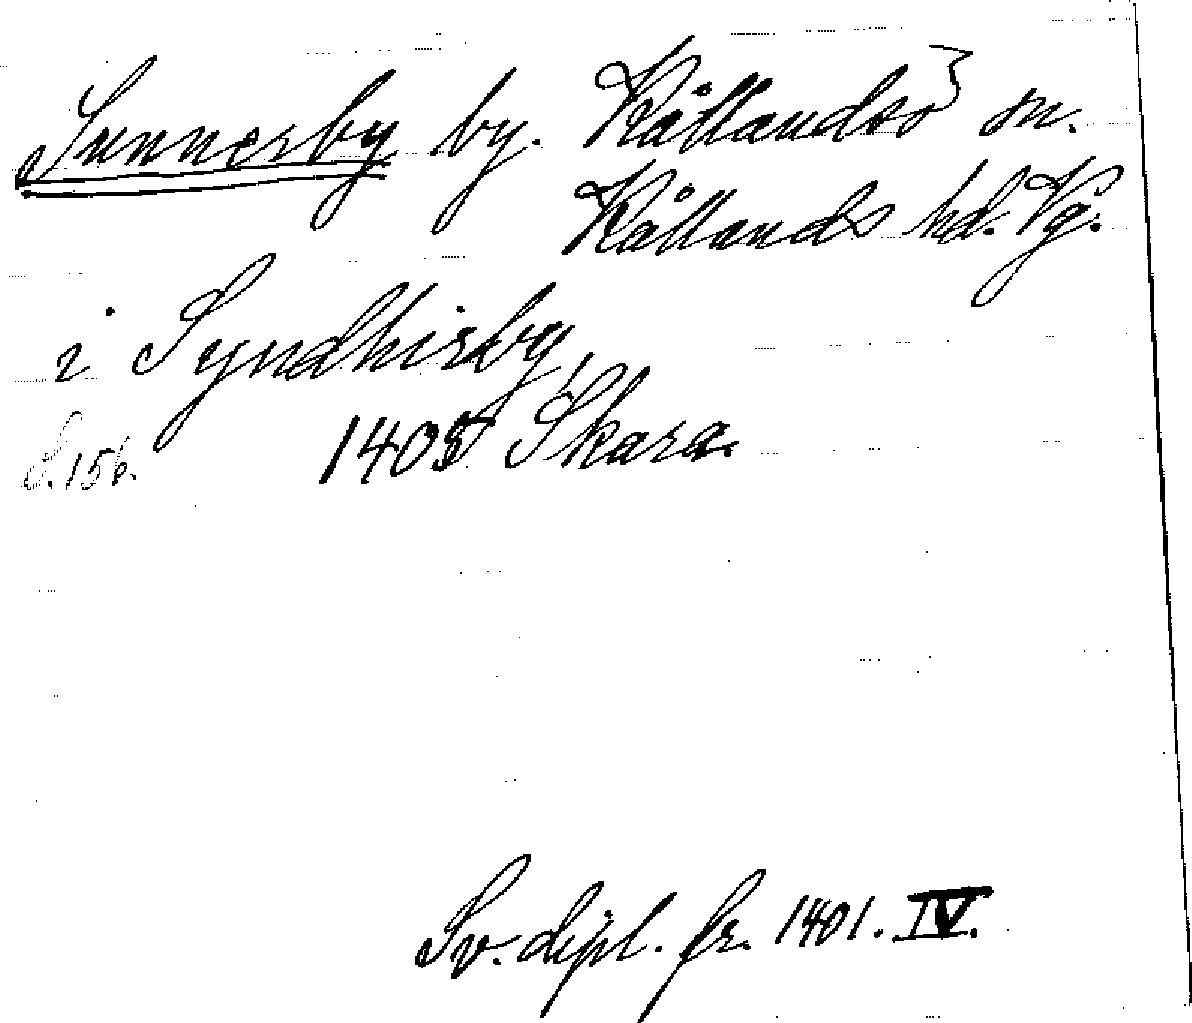 Sunnersby by. Kållandsö sn.
Kållands hd. Vg.
i Syndhirsby,
S. 156. 1405 Skara.
Sv. dipl. fr. 1401. IV.